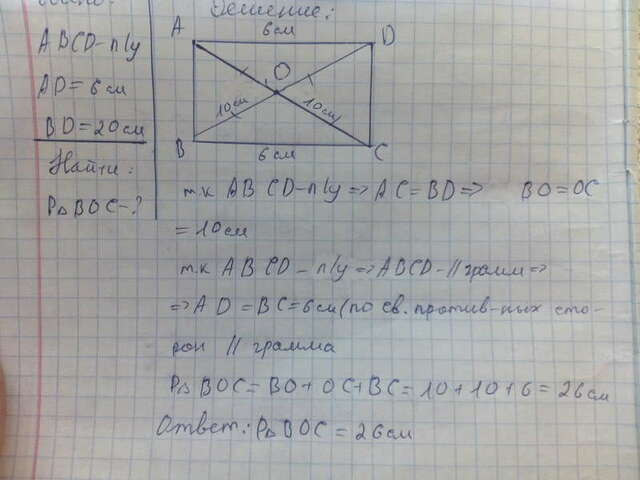 Решение:
ABCD-п/у
AD=6см
BD=20см
Найти:
P△BOC-?
A
6см
D
O
10см
10см
B
6см
C
т.к ABCD-п/у=>AC=BD=> BO=OC
=10см
т.к ABCD-п/у=>ABCD-//грамм=>
=>AD=BC=6см(по св. против-ных сто-
рон //грамма
P△BOC=BO+OC+BC=10+10+6=26см
Ответ:P△BOC=26см